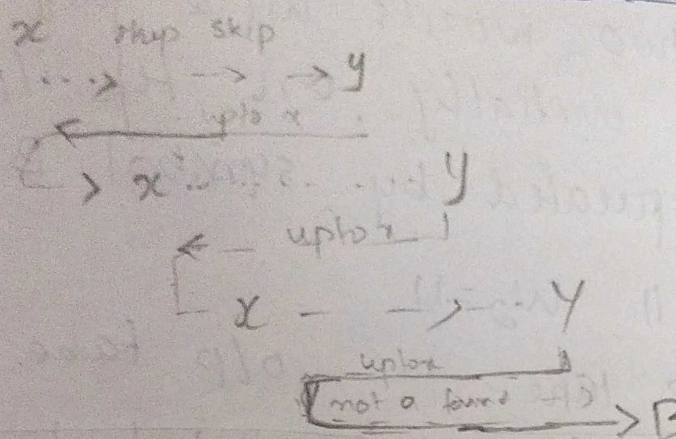 x skip skip
y
upto x
x y
upto x
x y
upto x
not a found
B